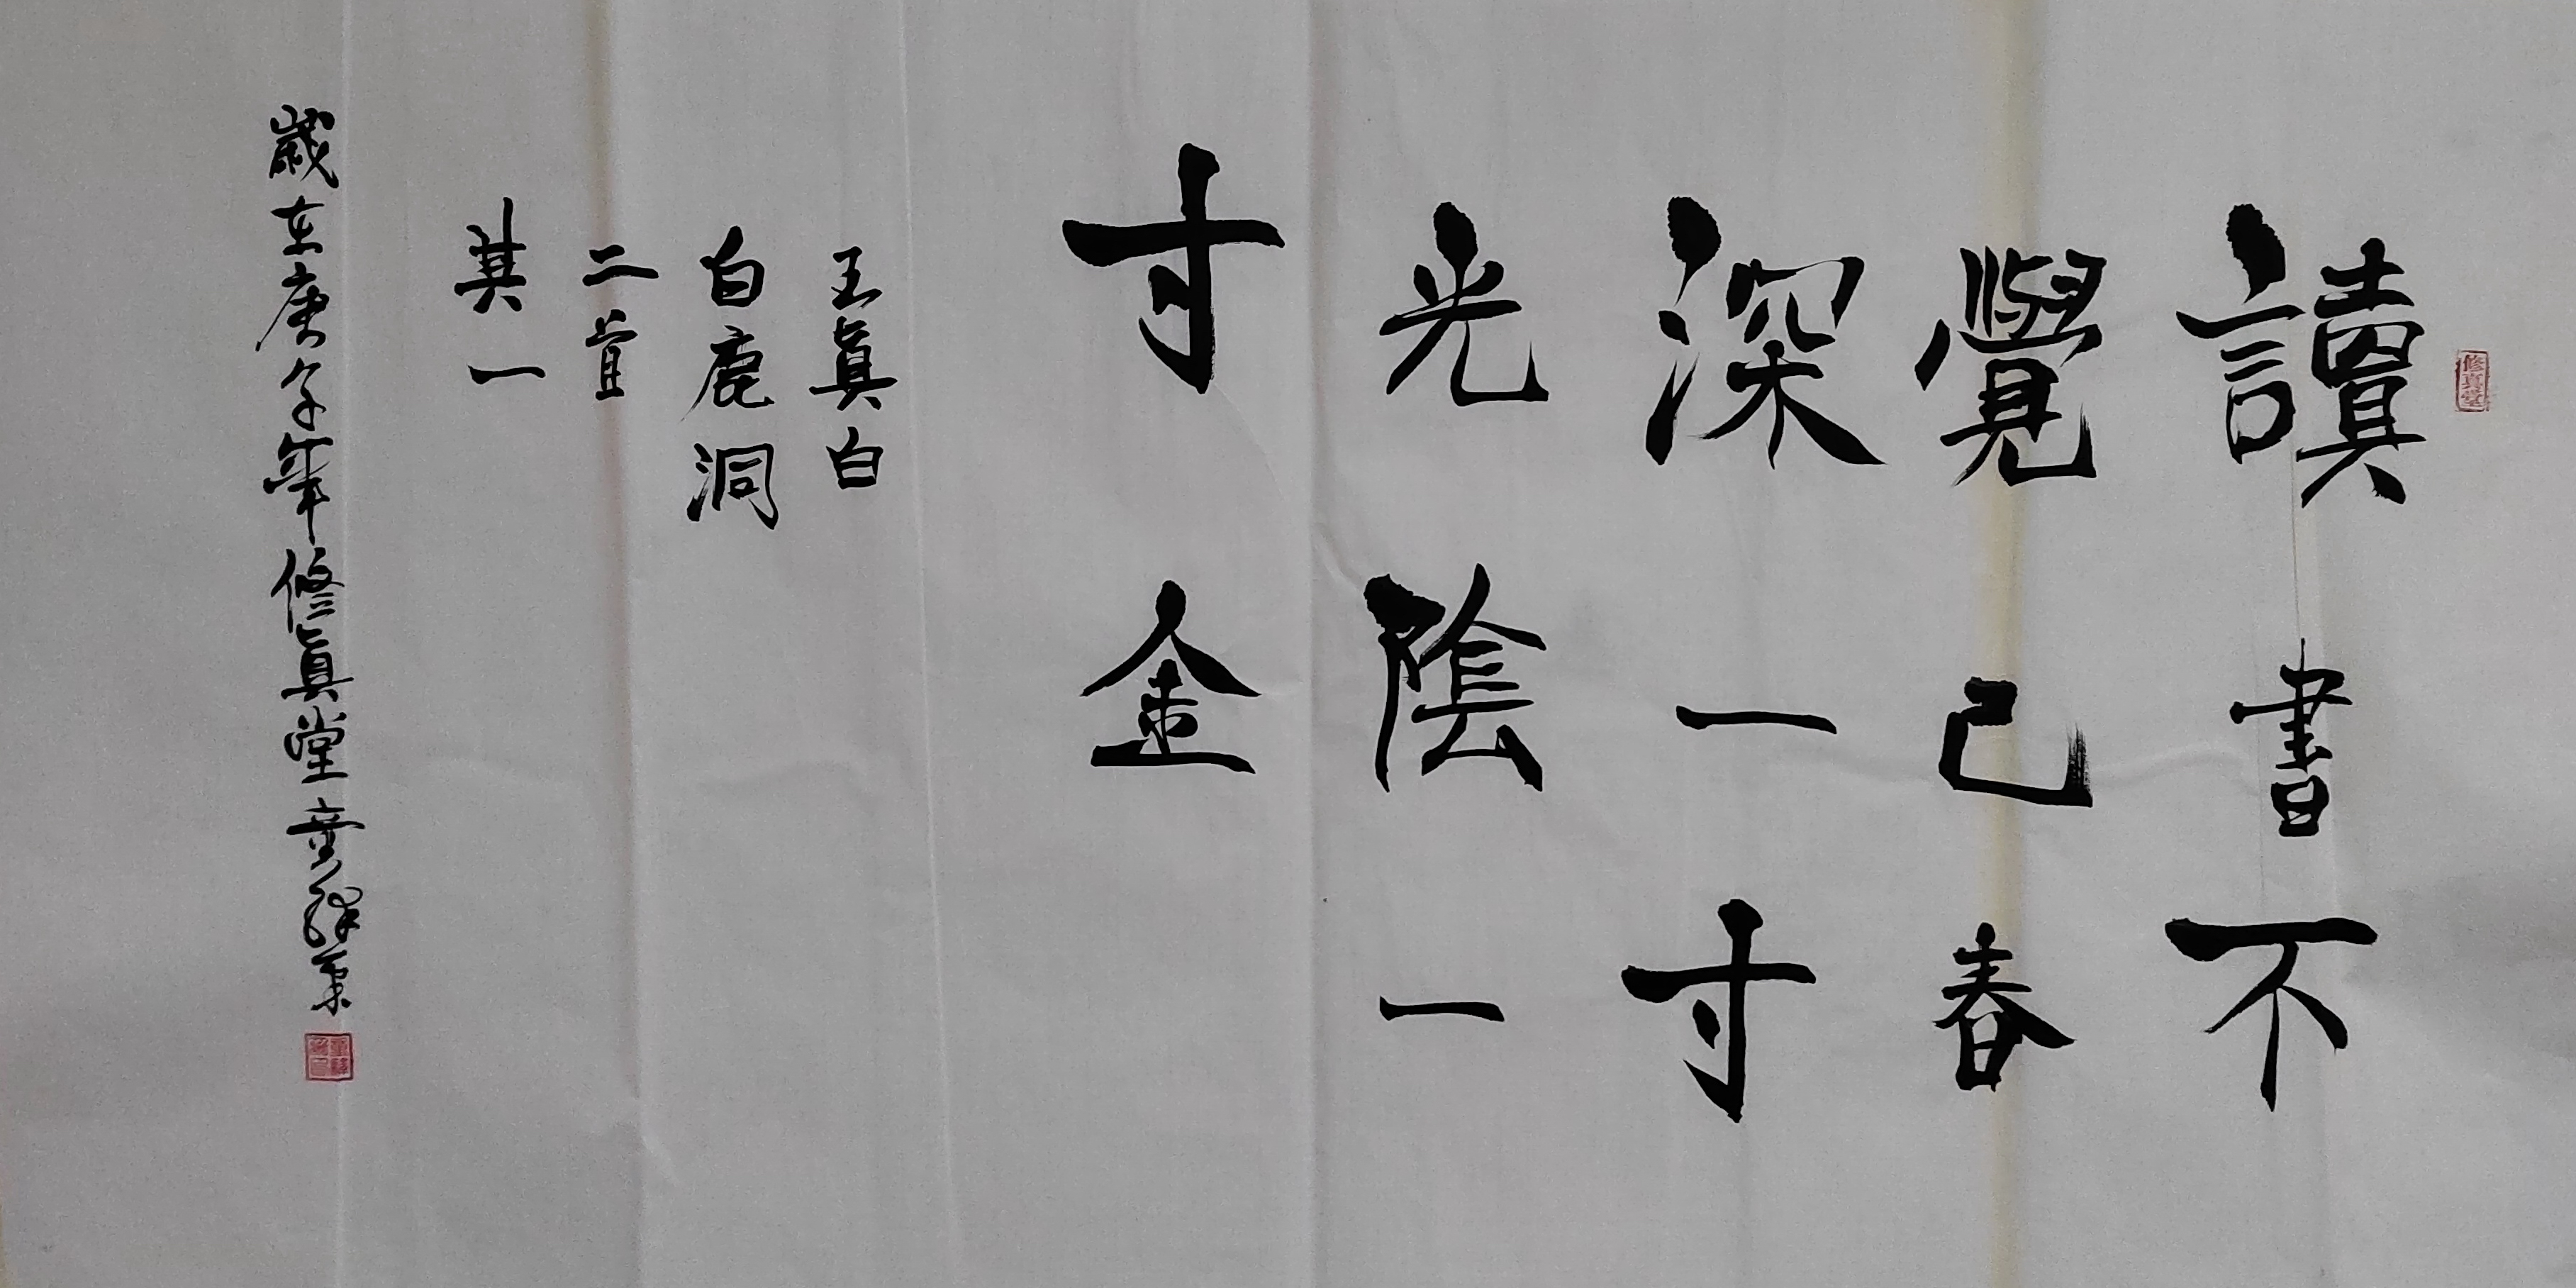 修真堂
讀書不
覺已春
深一寸
光陰一
寸金
王真白
白鹿洞
二首
其一
歲在庚子年修真堂童辉筆